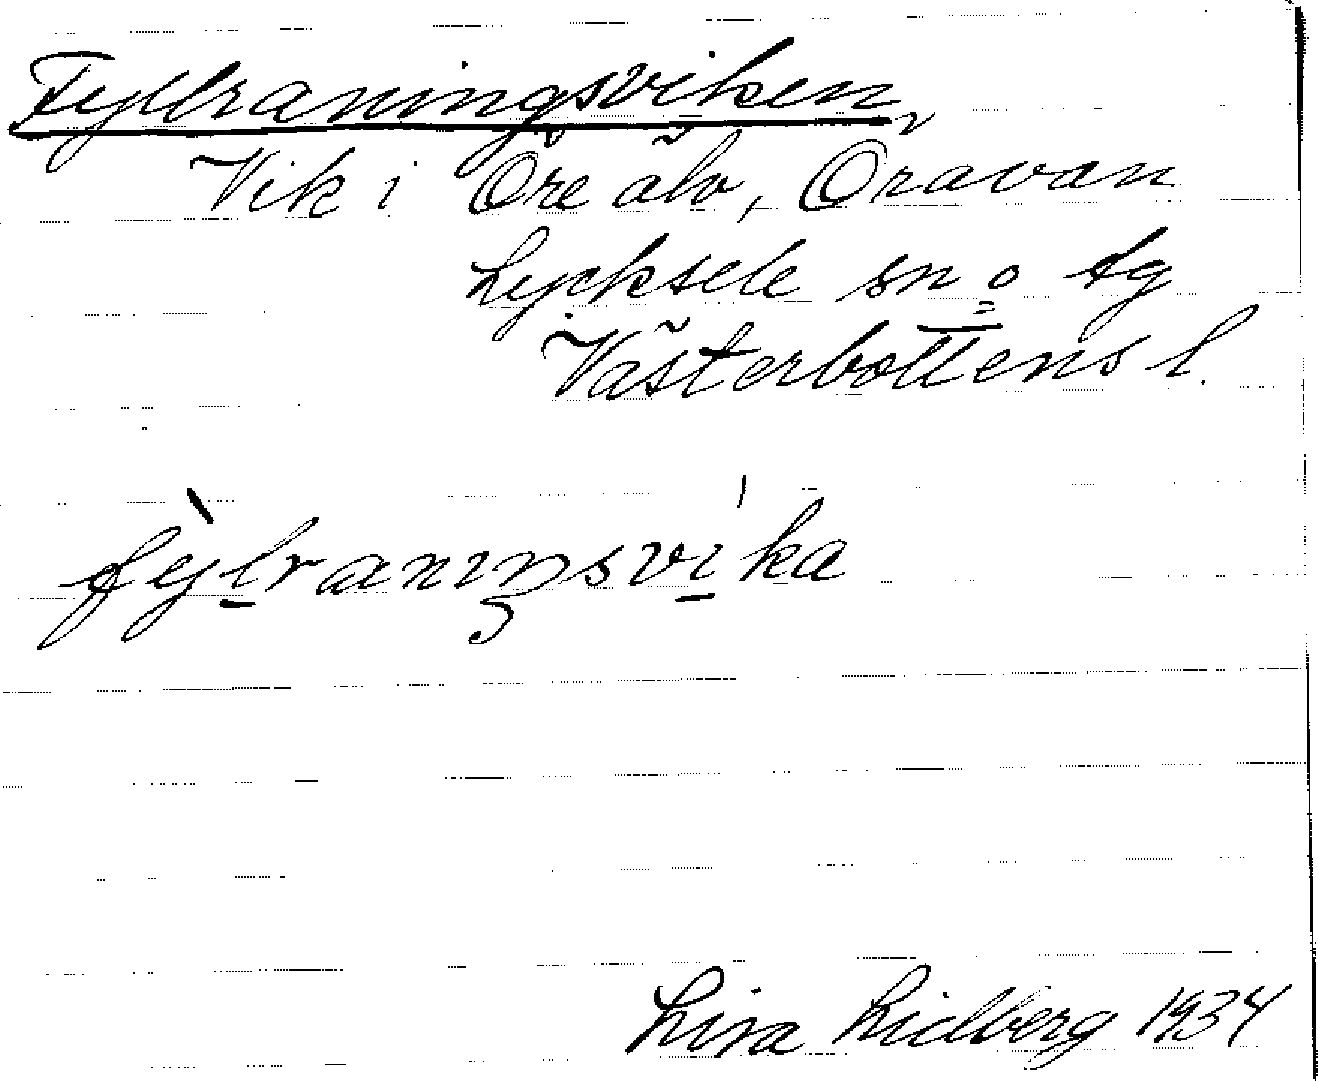 Fyllraningsviken,
Vik i Öre älv, Öravan
Lycksele sn o tg
Västerbottens l.
fylraniŋsvika
Lisa Lidberg 1934